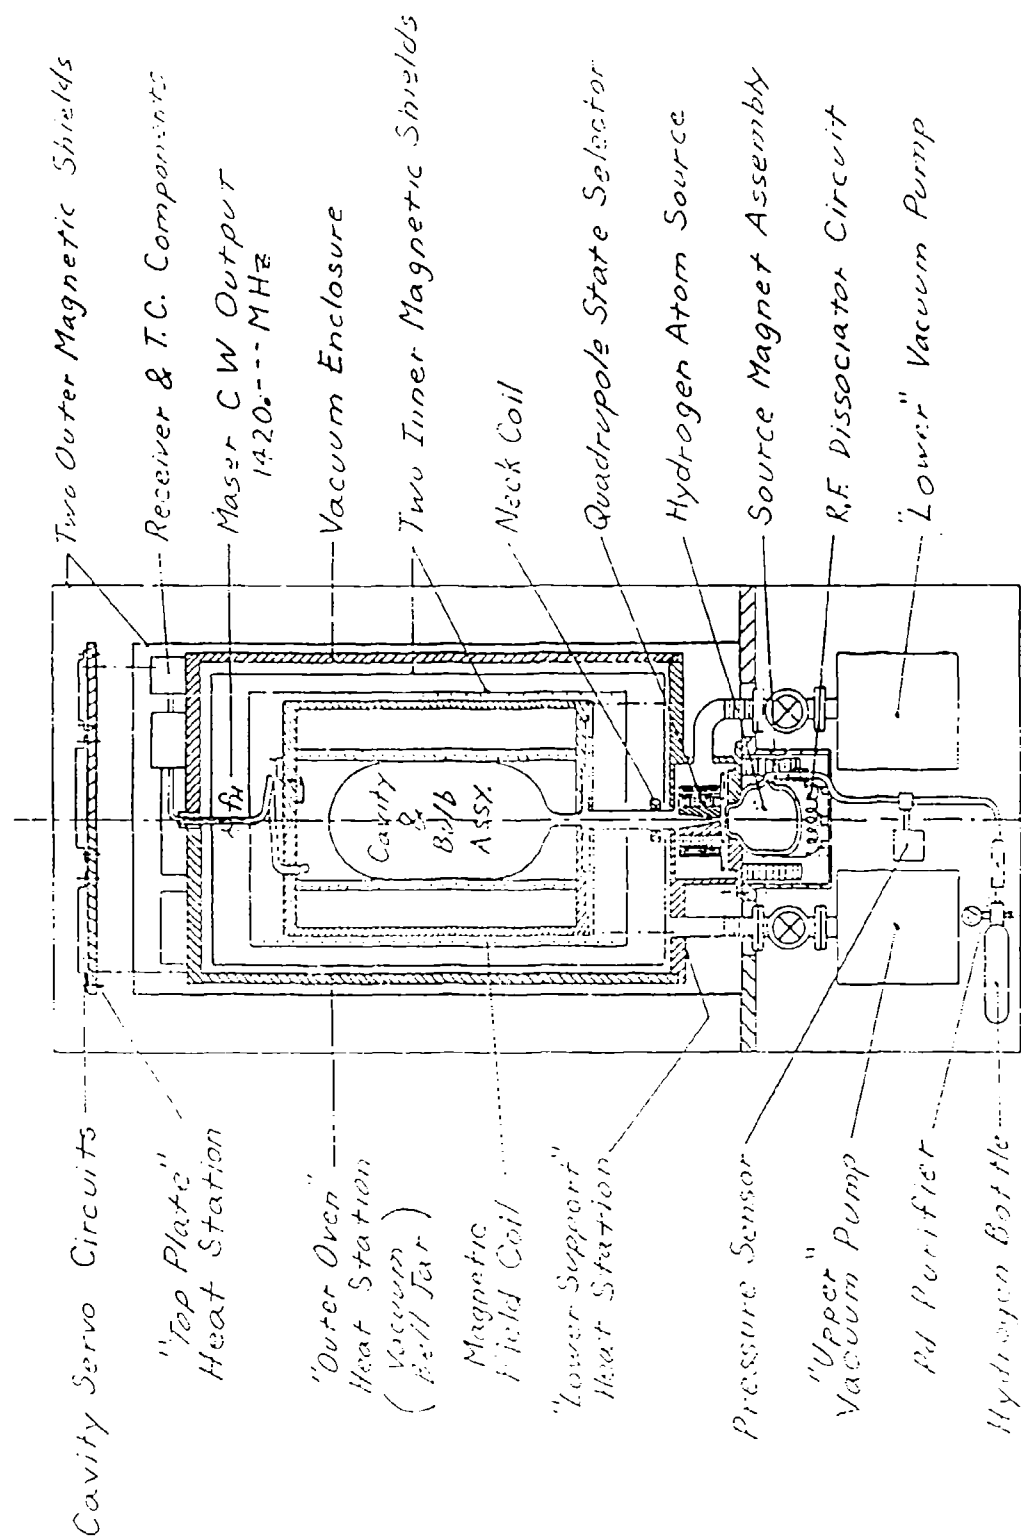 Two Outer Magnetic Shields
Receiver & T.C. Components
Maser CW Output
1420.--- MHz
Vacuum Enclosure
Two Inner Magnetic Shields
Neck Coil
Quadrupole State Selector
Hydrogen Atom Source
Source Magnet Assembly
R.F. Dissociator Circuit
"Lower" Vacuum Pump
fH
Cavity
&
Bulb
Assy.
Cavity Servo Circuits
"Top Plate"
Heat Station
"Outer Oven"
Heat Station
(Vacuum
Bell Jar)
Magnetic
Field Coil
"Lower Support"
Heat Station
Pressure Sensor
"Upper"
Vacuum Pump
Pd Purifier
Hydrogen Bottle